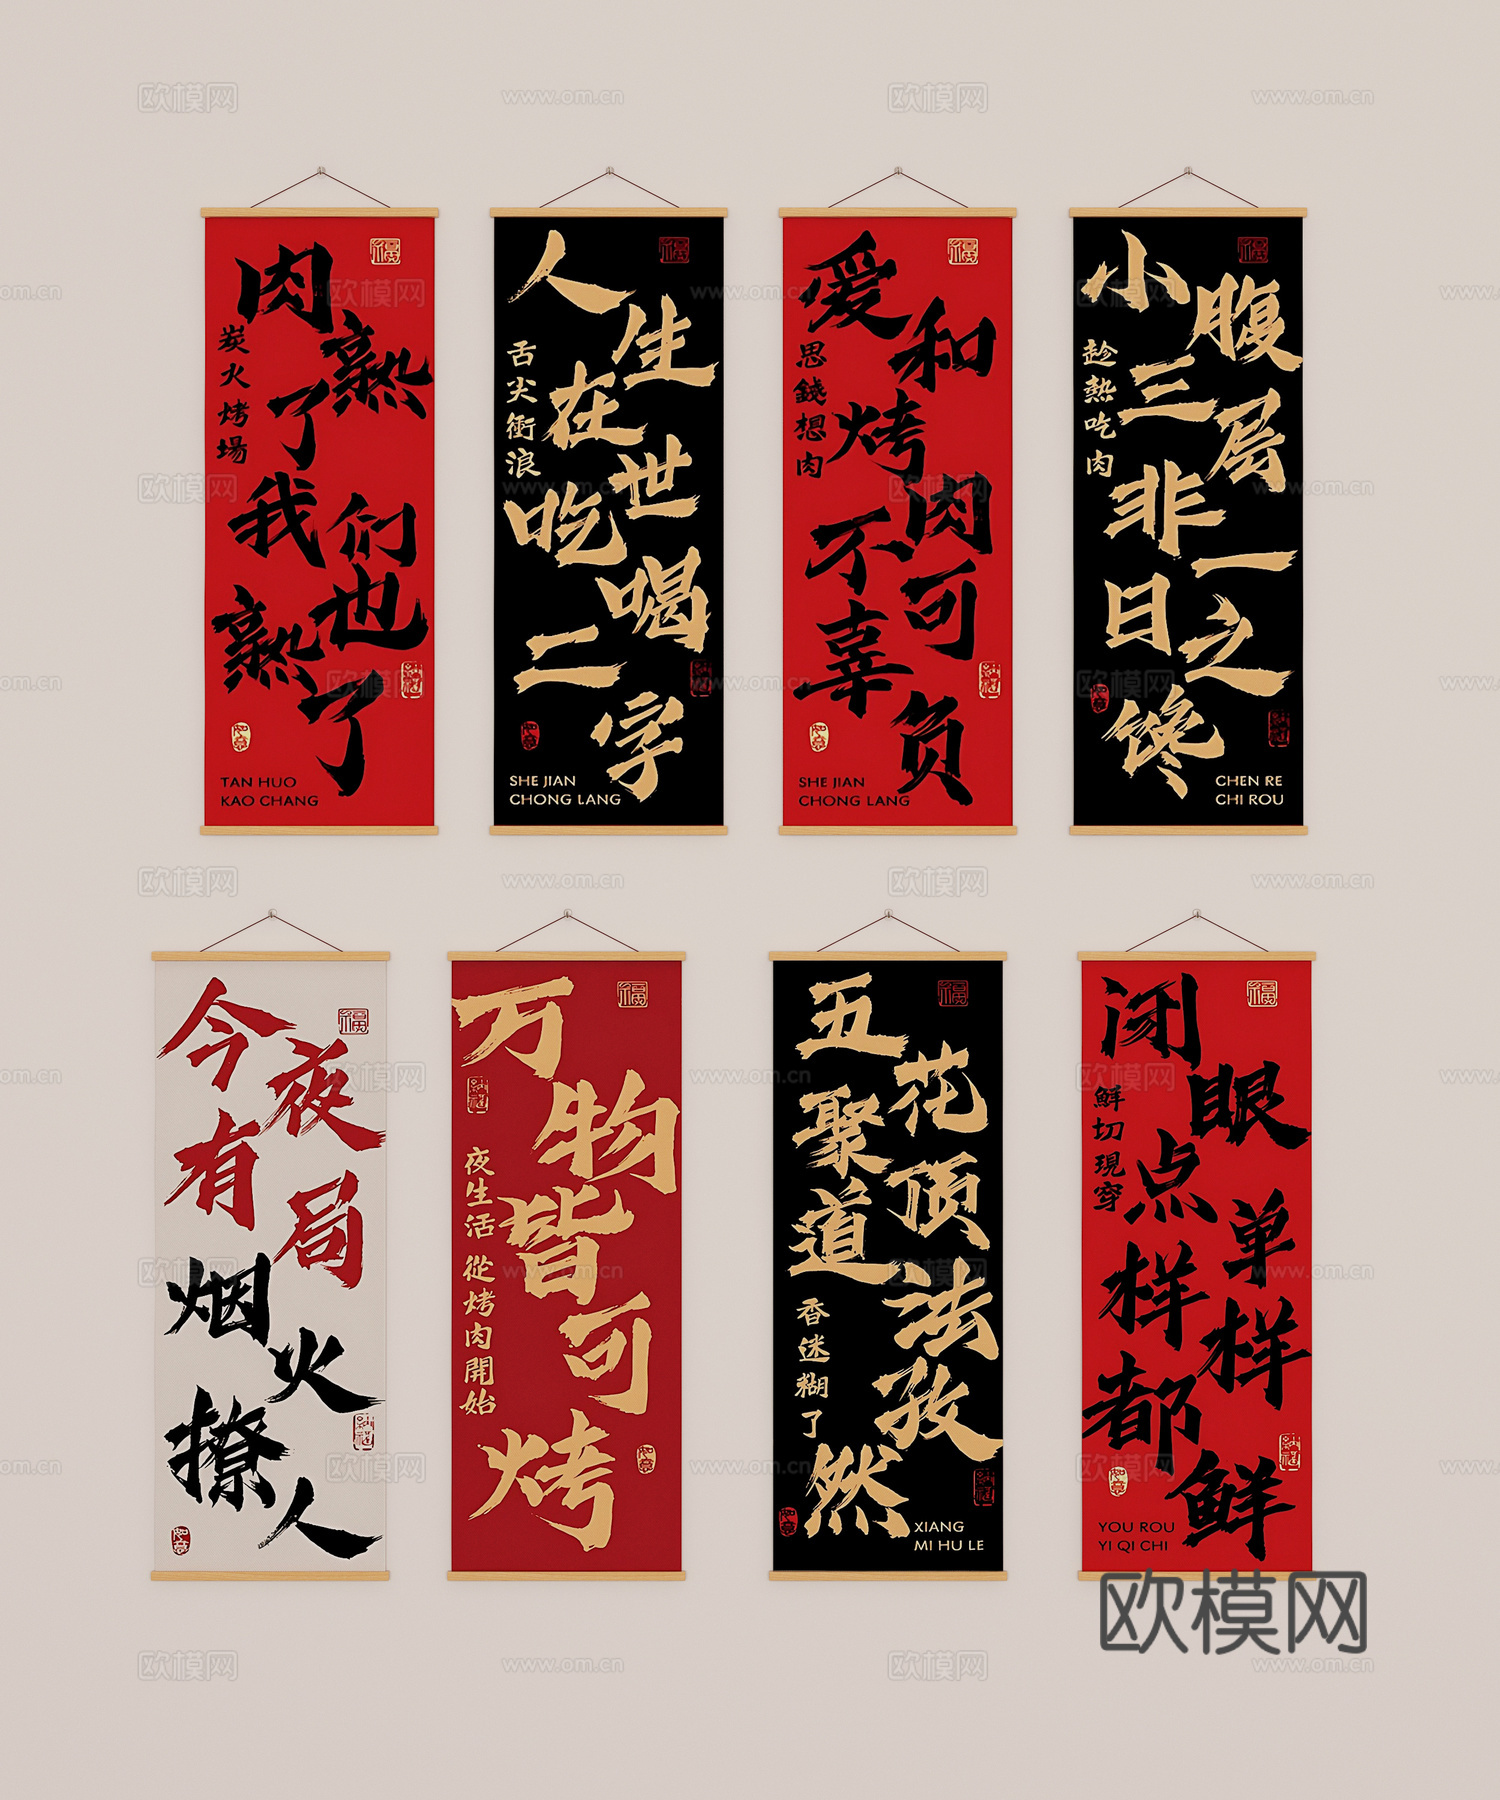 肉熟了我们也熟了
炭火烤場
福
納福
如意
TAN HUO
KAO CHANG
人生在世吃喝二字
舌尖衝浪
福
納福
如意
SHE JIAN
CHONG LANG
爱和烤肉不可辜负
思錢想肉
福
納福
如意
SHE JIAN
CHONG LANG
小腹三层非一日之馋
趁熱吃肉
福
納福
如意
CHEN RE
CHI ROU
今夜有局
烟火撩人
福
納福
如意
万物皆可烤
夜生活 從烤肉開始
福
納福
如意
五花聚顶道法孜然
香迷糊了
福
納福
如意
XIANG
MI HU LE
闭眼点单样样都鲜
鮮切現穿
福
納福
如意
YOU ROU
YI QI CHI
欧模网
www.om.cn